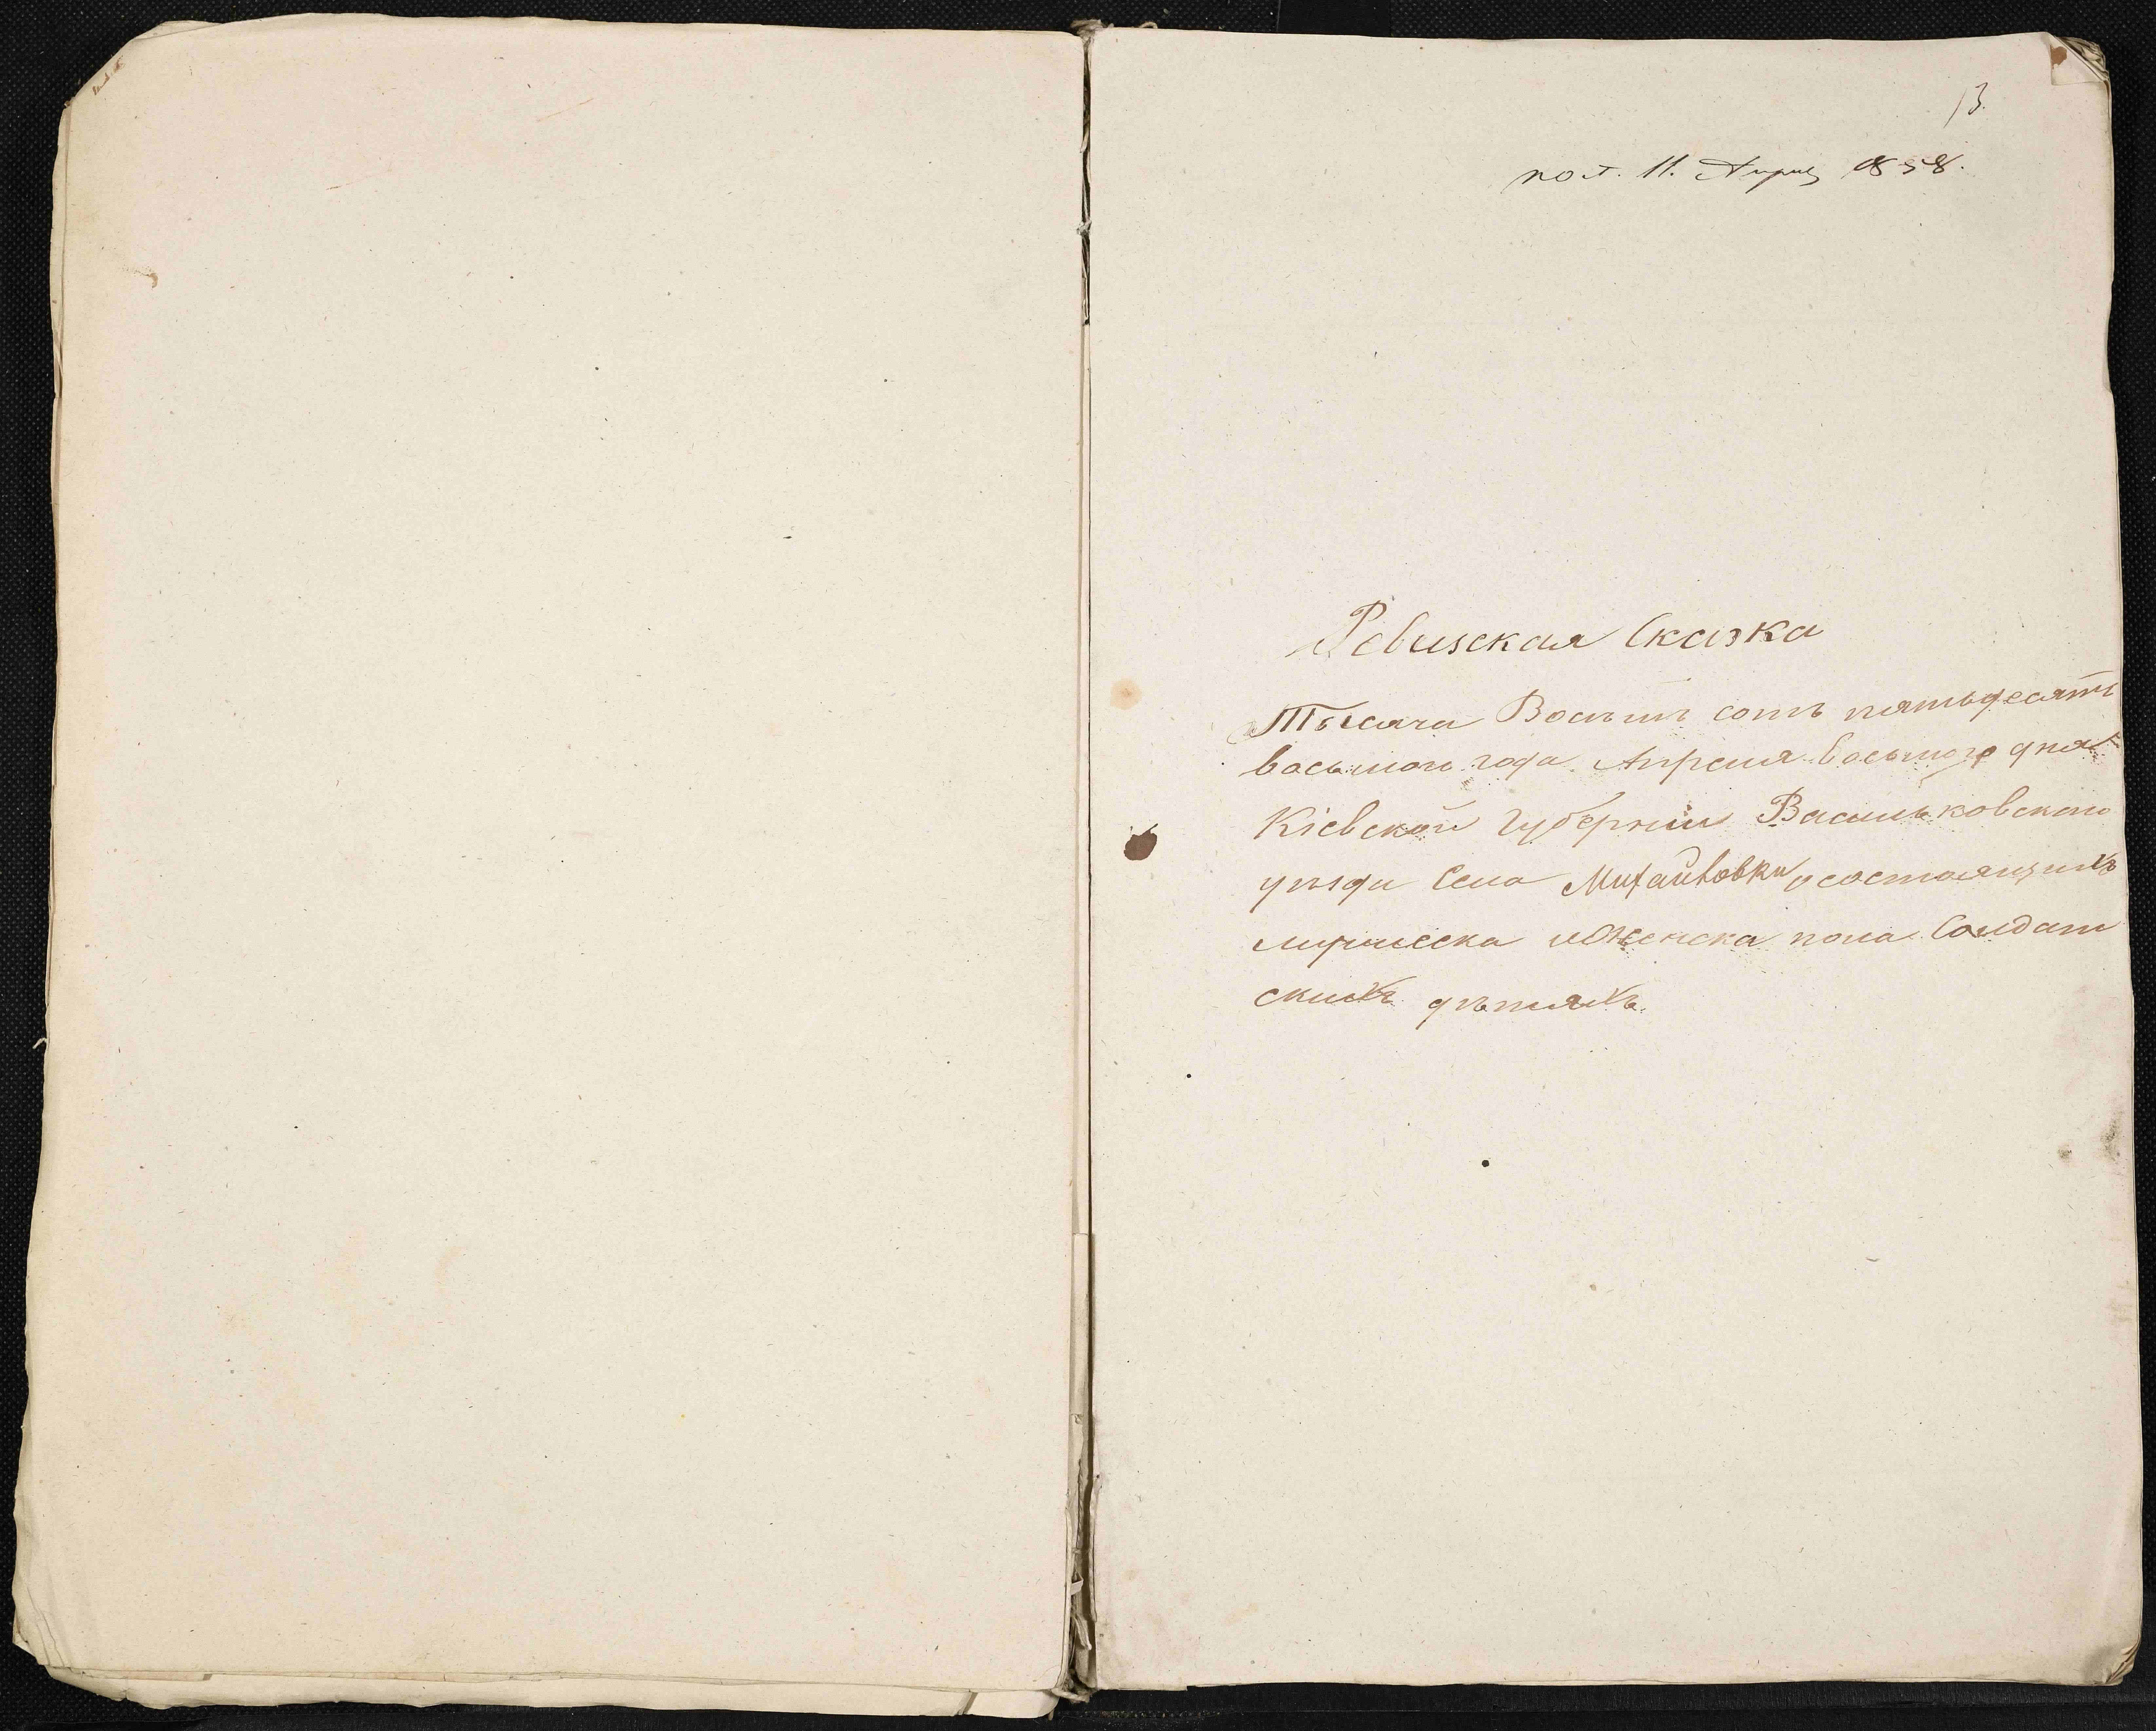 13.
пол. 11. Април 1858.
Ревизская Сказка
Тысяча Восѣмь сотъ пятьдесятъ
восьмои года Апреля восьмого дня
Кіевской Губернии Васильковского
уѣзди Села Михайловки о состоящихъ
мужиеска иЖенска пола Солдат
скихъ дѣтяхъ.